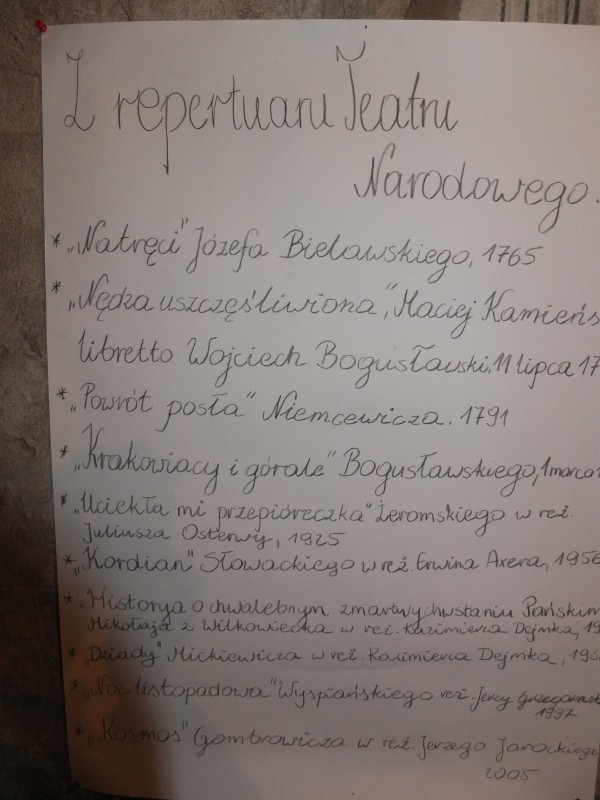 Z repertuaru Teatru
Narodowego.
* „Natręci" Józefa Bielawskiego, 1765
* „Nędza uszczęśliwiona", Maciej Kamieńs
libretto Wojciech Bogusławski, 11 lipca 17
* „Powrót posła" Niemcewicza. 1791
* „Krakowiacy i górale" Bogusławskiego, 1 marca
* „Uciekła mi przepióreczka" Żeromskiego w reż.
Juliusza Osterwy, 1925
* „Kordian" Słowackiego w reż. Erwina Axera, 1956
* „Historya o chwalebnym zmartwychwstaniu Pańskim
Mikołaja z Wilkowiecka w reż. Kazimierza Dejmka, 19
* „Dziady" Mickiewicza w reż. Kazimierza Dejmka, 196
* „Noc listopadowa" Wyspiańskiego reż. Jerzy
1997
* „Kosmos" Gombrowicza w reż. Jerzego Jarockiego
2005